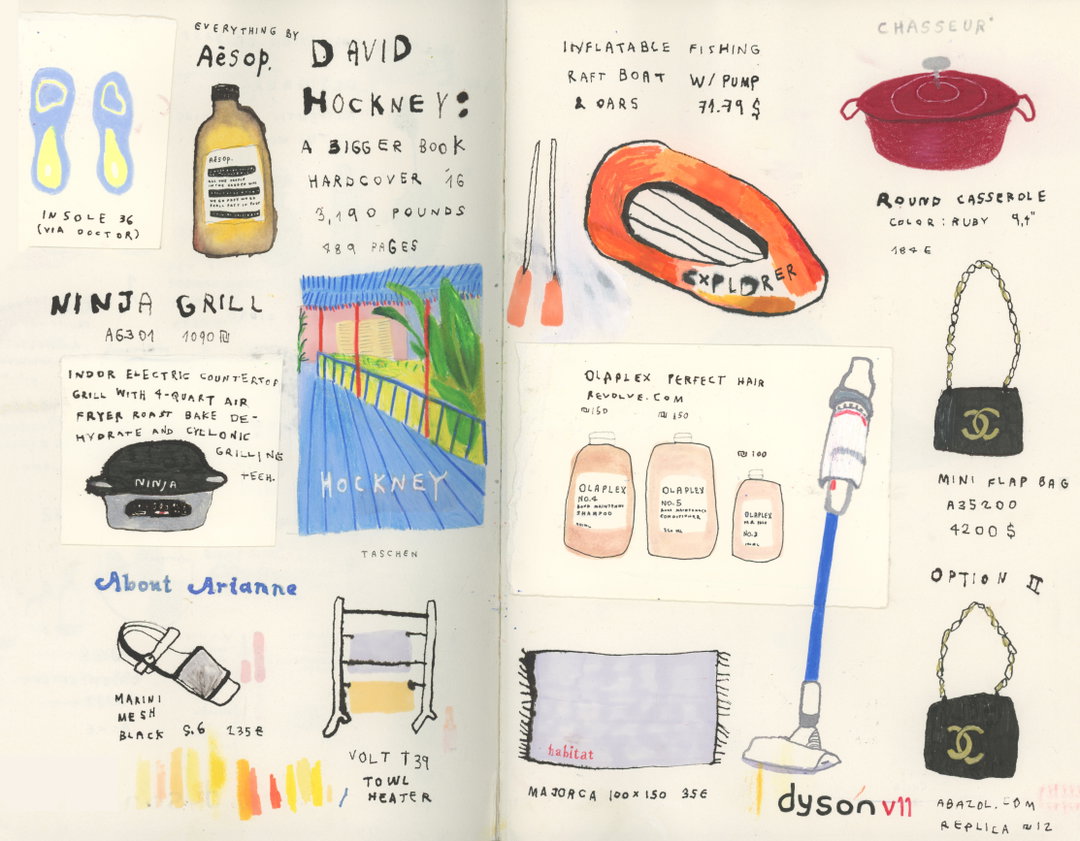 INSOLE 36
(VIA DOCTOR)
EVERYTHING BY
Aēsop.
Aēsop.
DAVID
HOCKNEY:
A BIGGER BOOK
HARDCOVER 16
3,190 POUNDS
489 PAGES
HOCKNEY
TASCHEN
NINJA GRILL
AG301 1090 ₪
INDOR ELECTRIC COUNTERTOP
GRILL WITH 4-QUART AIR
FRYER ROAST BAKE DE-
HYDRATE AND CYCLONIC
GRILLING
TECH.
NINJA
About Arianne
MARINI
MESH
BLACK S.6 235€
VOLT T39
TOWL
HEATER
INFLATABLE FISHING
RAFT BOAT W/ PUMP
& OARS 71.79 $
EXPLORER
CHASSEUR
ROUND CASSEROLE
COLOR: RUBY 9,4"
184 €
OLAPLEX PERFECT HAIR
REVOLVE.COM
₪150 ₪ 150
₪ 100
OLAPLEX
NO.4
BOND MAINTENANCE
SHAMPOO
OLAPLEX
NO.5
BOND MAINTENANCE
CONDITIONER
OLAPLEX
NO.3
MINI FLAP BAG
A35200
4200 $
OPTION II
habitat
MAJORCA 100×150 35€
dyson v11
ABAZOL.COM
REPLICA ₪12